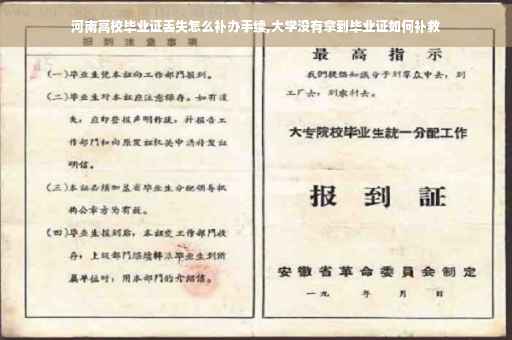 河南高校毕业证丢失怎么补办手续,大学没有拿到毕业证如何补救
报到注意事项
(一)毕业生凭本证向工作部門报到。
(二)毕业生对本証应注意保存。如有遺
失,应即登报声明作廢,并报告工
作部門和向原发証机关申請补发証
明信。
(三)本証必須加盖省毕业生分配領导机
构公章方为有效。
(四)毕业生报到后,本証交工作部門收
存;上級部門
屬单位时,用本部門的介紹信。
最高指示
我們提倡知識分子到羣众中去,到
工厂去,到农村去。
大专院校毕业生統一分配工作
报到証
安徽省革命委員会制定
一九 年 月 日